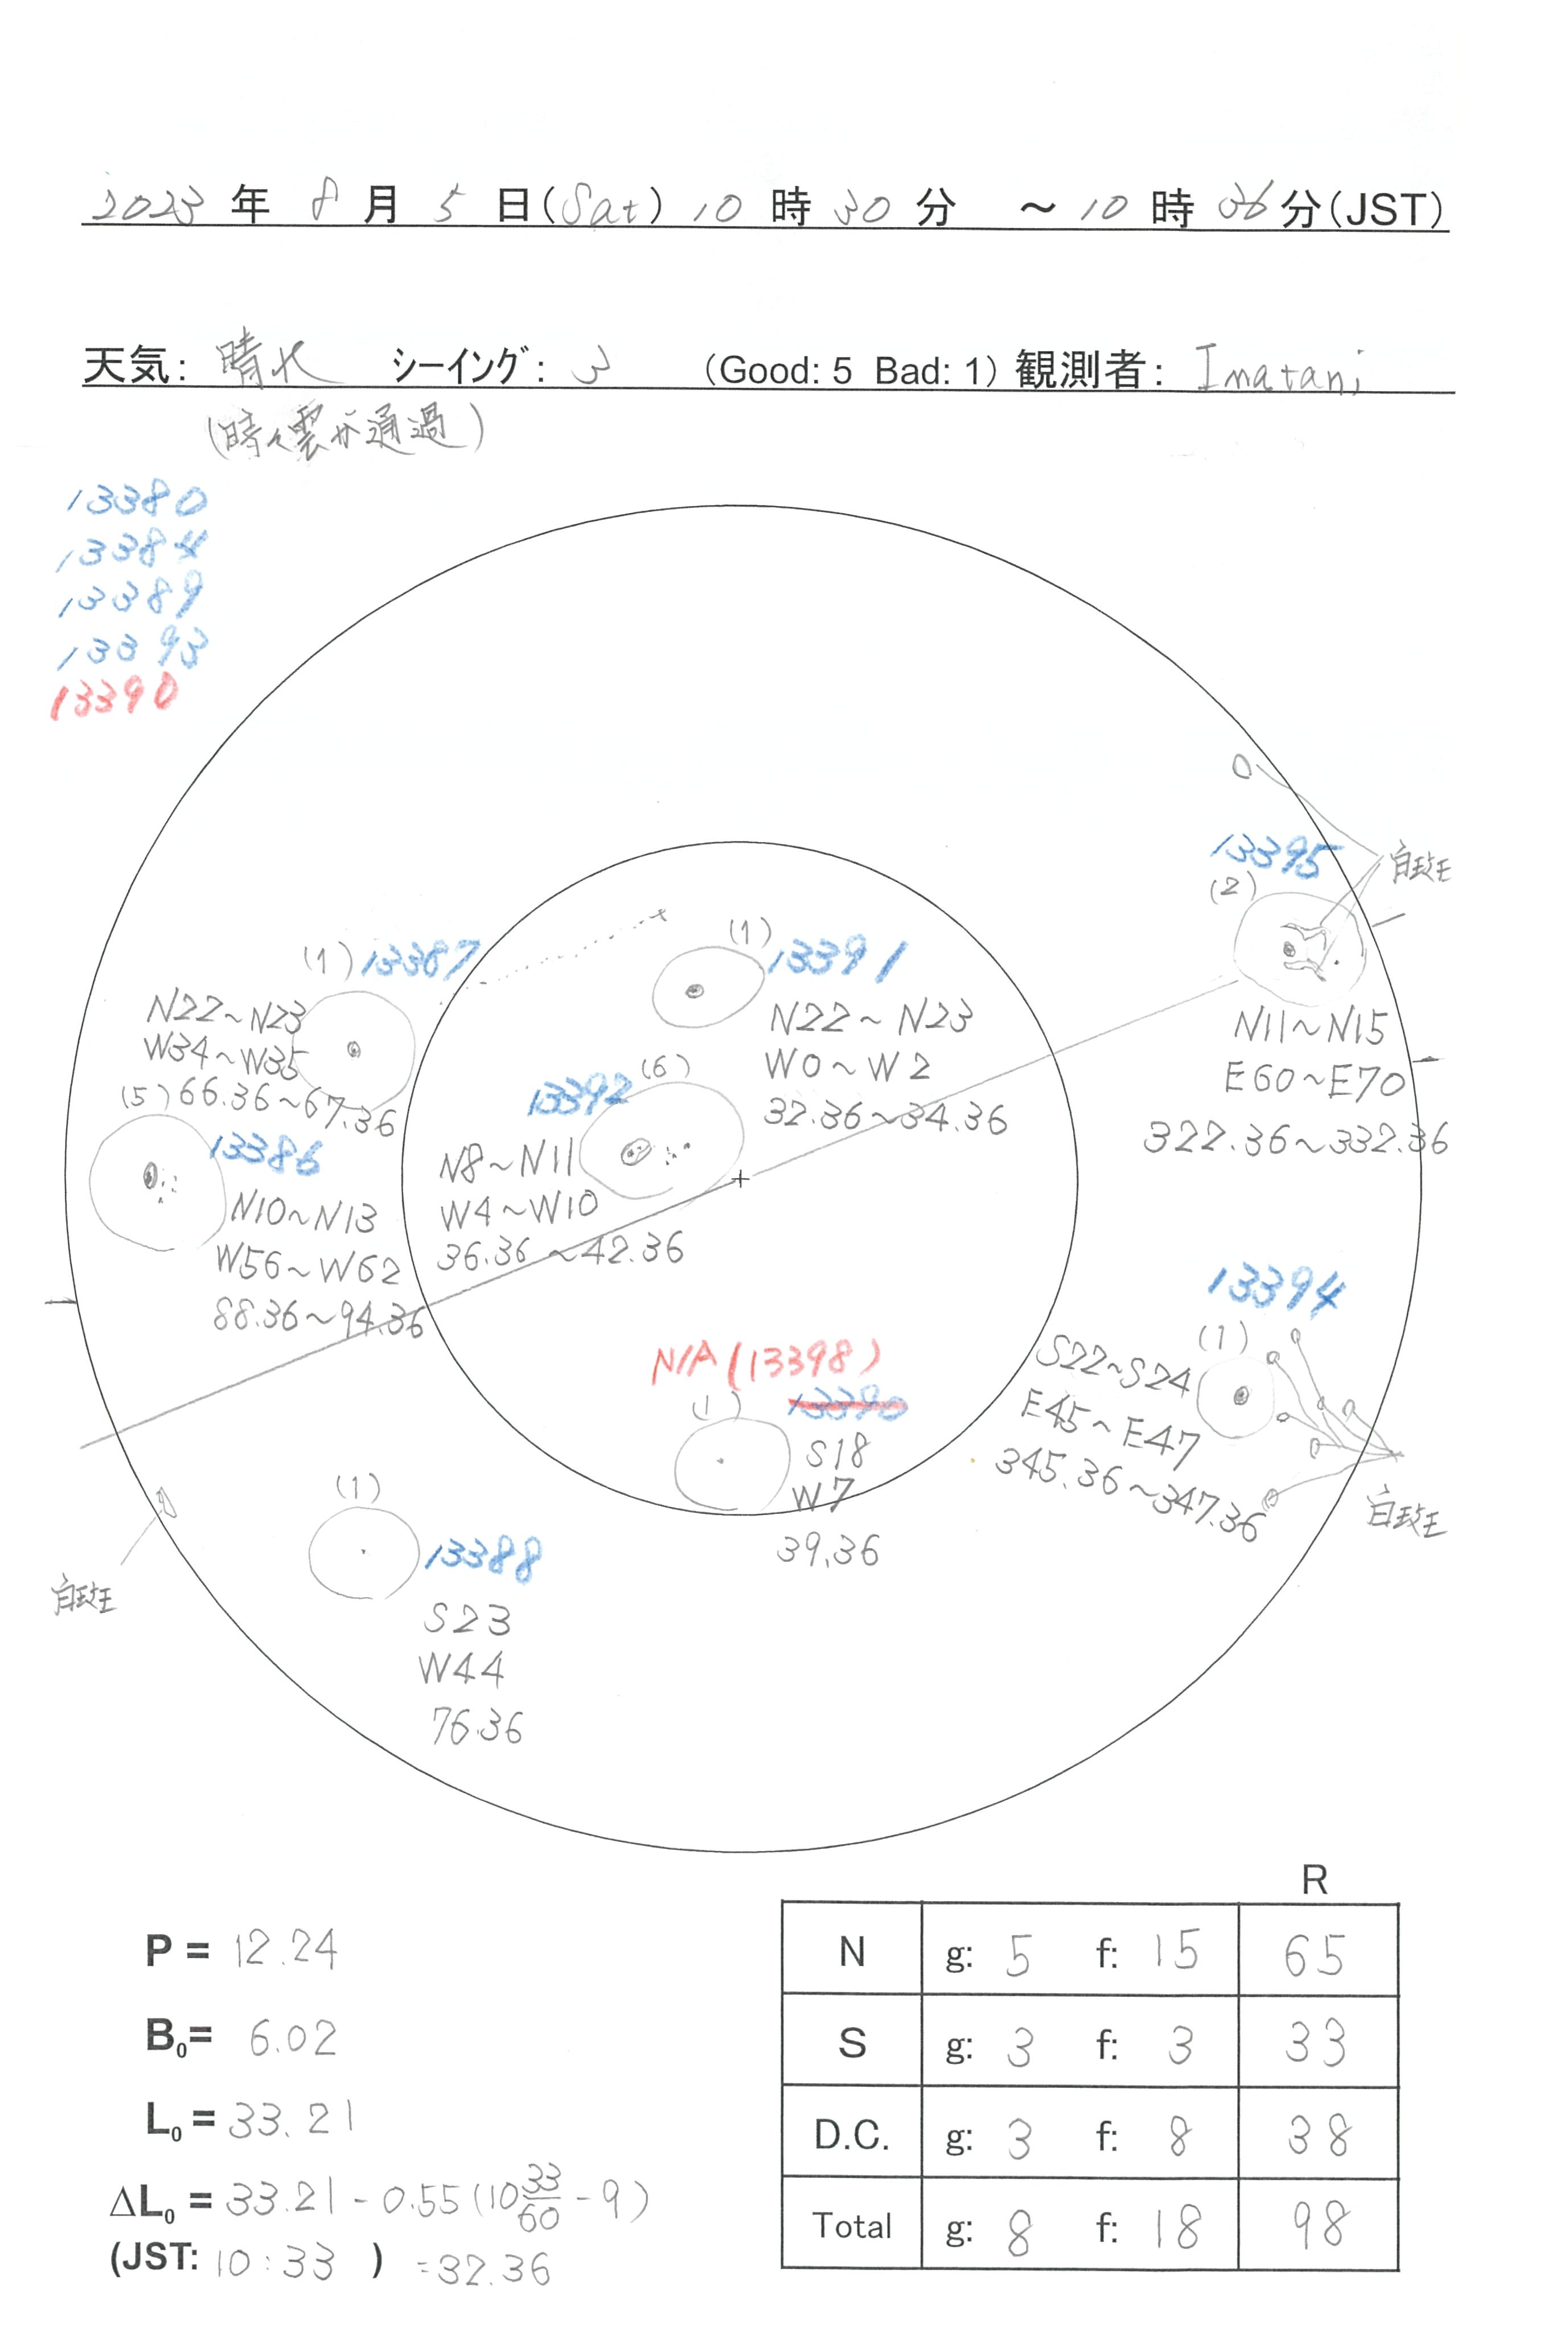 2023 年 8 月 5 日(Sat) 10 時 30 分 ～10 時 36分(JST)
天気: 晴れ シーイング: 3 (Good: 5 Bad: 1) 観測者: Imatani
(時々雲が通過)
13380
13384
13389
13393
13390
白斑
13395
(2)
N11～N15
E60～E70
322.36～332.36
(1) 13391
N22～N23
W0～W2
32.36～34.36
(1) 13387
N22～N23
W34～W35
66.36～67.36
(6)
13392
N8～N11
W4～W10
36.36～42.36
(5)
13386
N10～N13
W56～W62
88.36～94.36
13394
(1)
S22～S24
E45～E47
345.36～347.36
白斑
N/A (13398)
13390
(1)
S18
W7
39.36
(1)
13388
S23
W44
76.36
白斑
P = 12.24
B0= 6.02
L0 = 33.21
ΔL0 = 33.21 - 0.55 (10 33/60 - 9)
(JST: 10:33 ) =32.36
R
N g: 5 f: 15 65
S g: 3 f: 3 33
D.C. g: 3 f: 8 38
Total g: 8 f: 18 98